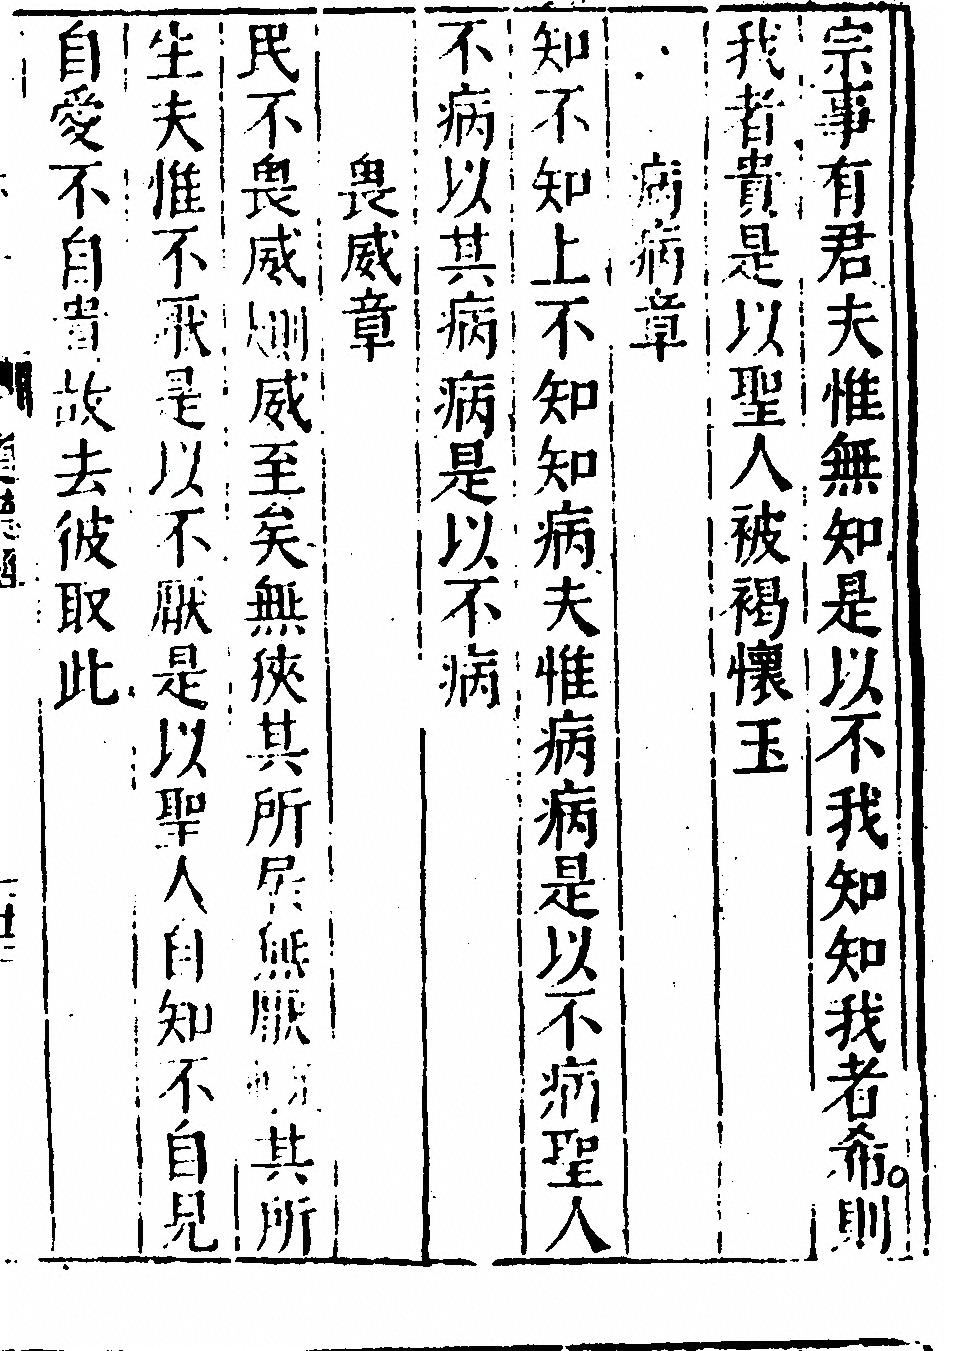 宗事有君夫惟無知是以不我知知我者希則
我者貴是以聖人被褐懷玉
病病章
知不知上不知知病夫惟病病是以不病聖人
不病以其病病是以不病
畏威章
民不畏威則威至矣無狹其所居無厭其所
生夫惟不厭是以不厭是以聖人自知不自見
自愛不自貴故去彼取此